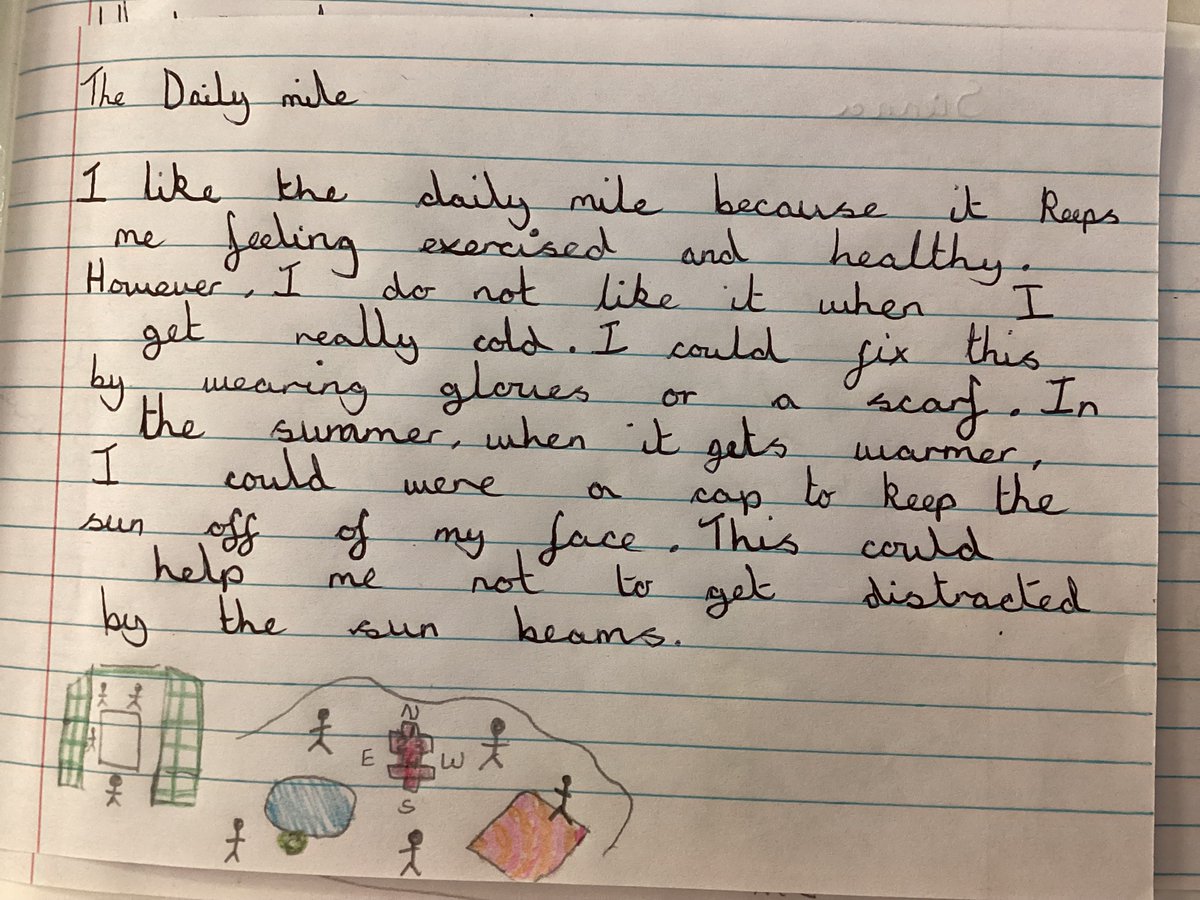 The Daily mile
I like the daily mile because it keeps
me feeling exercised and healthy.
However, I do not like it when I
get really cold. I could fix this
by wearing gloves or a scarf. In
the summer, when it gets warmer,
I could were a cap to keep the
sun off of my face. This could
help me not to get distracted
by the sun beams.
N
E W
S